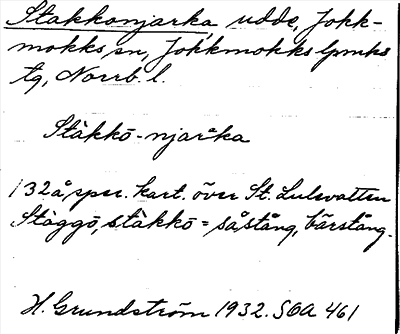 Stakkonjarka, udde, Jokk-
mokks sn, Jokkmokks lpmks
tg, Norrb. l.
Stàkkō-njarka
132å, spec. kart. över St. Lulevatten
Stàggō, stàkkō = såstång, bärstång.
H. Grundström 1932. SOA 461